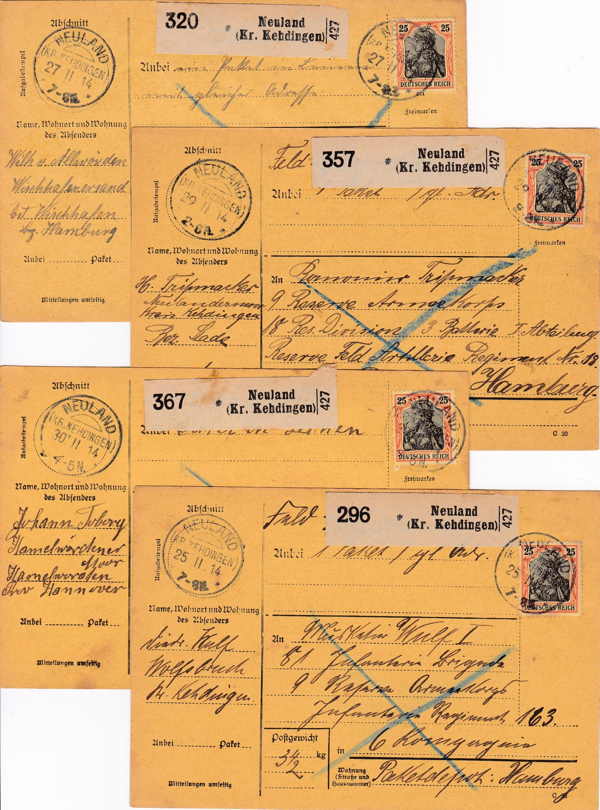 Abschnitt
320 Neuland
(Kr. Kehdingen) 427
25 25
DEUTSCHES REICH
NEULAND
(KR. KEHDINGEN)
27 11 14
7-8N.
Anbei
Freimarken
Aufgabestempel
Name, Wohnort und Wohnung
des Absenders
bei Kirchhafen
Hamburg
Anbei Paket
Mitteilungen umseitig
Abschnitt
Feld
357 Neuland
(Kr. Kehdingen) 427
25 25
DEUTSCHES REICH
NEULAND
(KR. KEHDINGEN)
29 11 14
2-6N.
Anbei 1 Paket / gl. Adr.
Freimarken
Aufgabestempel
Name, Wohnort und Wohnung
des Absenders
H. Tripmacker
Neulandermoor
Kreis Kehdingen
Bez. Stade
An Kanonier Tripmacker
9 Reserve Armee Korps
18 Res. Division 3 Batterie 1. Abteilung
Reserve Feld Artillerie Regiment Nr. 18
Hamburg.
C 90
Abschnitt
367 Neuland
(Kr. Kehdingen) 427
25 25
DEUTSCHES REICH
NEULAND
(KR. KEHDINGEN)
30 11 14
4-5N.
Anbei
Freimarken
Aufgabestempel
Name, Wohnort und Wohnung
des Absenders
Johann
Hamelwördener
Moor
Hamelwörden
Prov Hannover
Anbei Paket
Mitteilungen umseitig
Abschnitt
Feld
296 Neuland
(Kr. Kehdingen) 427
25 25
DEUTSCHES REICH
NEULAND
(KR. KEHDINGEN)
25 11 14
7-8N.
Anbei 1 Paket / gl. Adr.
Freimarken
Aufgabestempel
Name, Wohnort und Wohnung
des Absenders
Diedr. Wulf
Wolfsbruch
Kr. Kehdingen
Anbei Paket
Mitteilungen umseitig
An Musketier Wulf I
81 Infanterie Brigade
9 Reserve Armeekorps
Infanterie Regiment 163.
in 6 Kompagnie
Postgewicht
3 1/2 kg
Wohnung
(Straße und
Hausnummer) Paketdepot: Hamburg